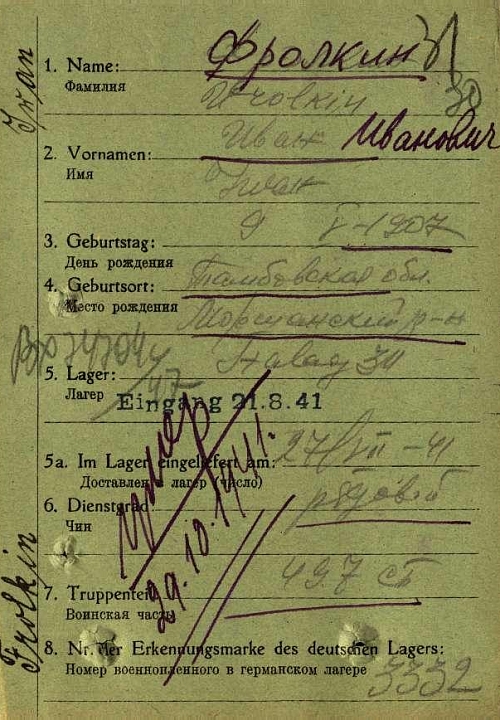 Iwan
Frolkin
1. Name: Фролкин
Фамилия
30
Иван Иванович
2. Vornamen:
Имя
Iwan
9 V-1907
3. Geburtstag:
День рождения
4. Geburtsort: Тамбовская обл.
Место рождения Моршанский р-н
5. Lager: Stalag
Лагерь
Eingang 21.8.41
5a. Im Lager eingeliefert am: 27/VIII-41
Доставлен в лагерь (число)
умер
29.10.1941г.
6. Dienstgrad: рядовой
Чин
7. Truppenteil: 497 сб
Воинская часть
8. Nr. der Erkennungsmarke des deutschen Lagers:
Номер военнопленного в германском лагере 3332